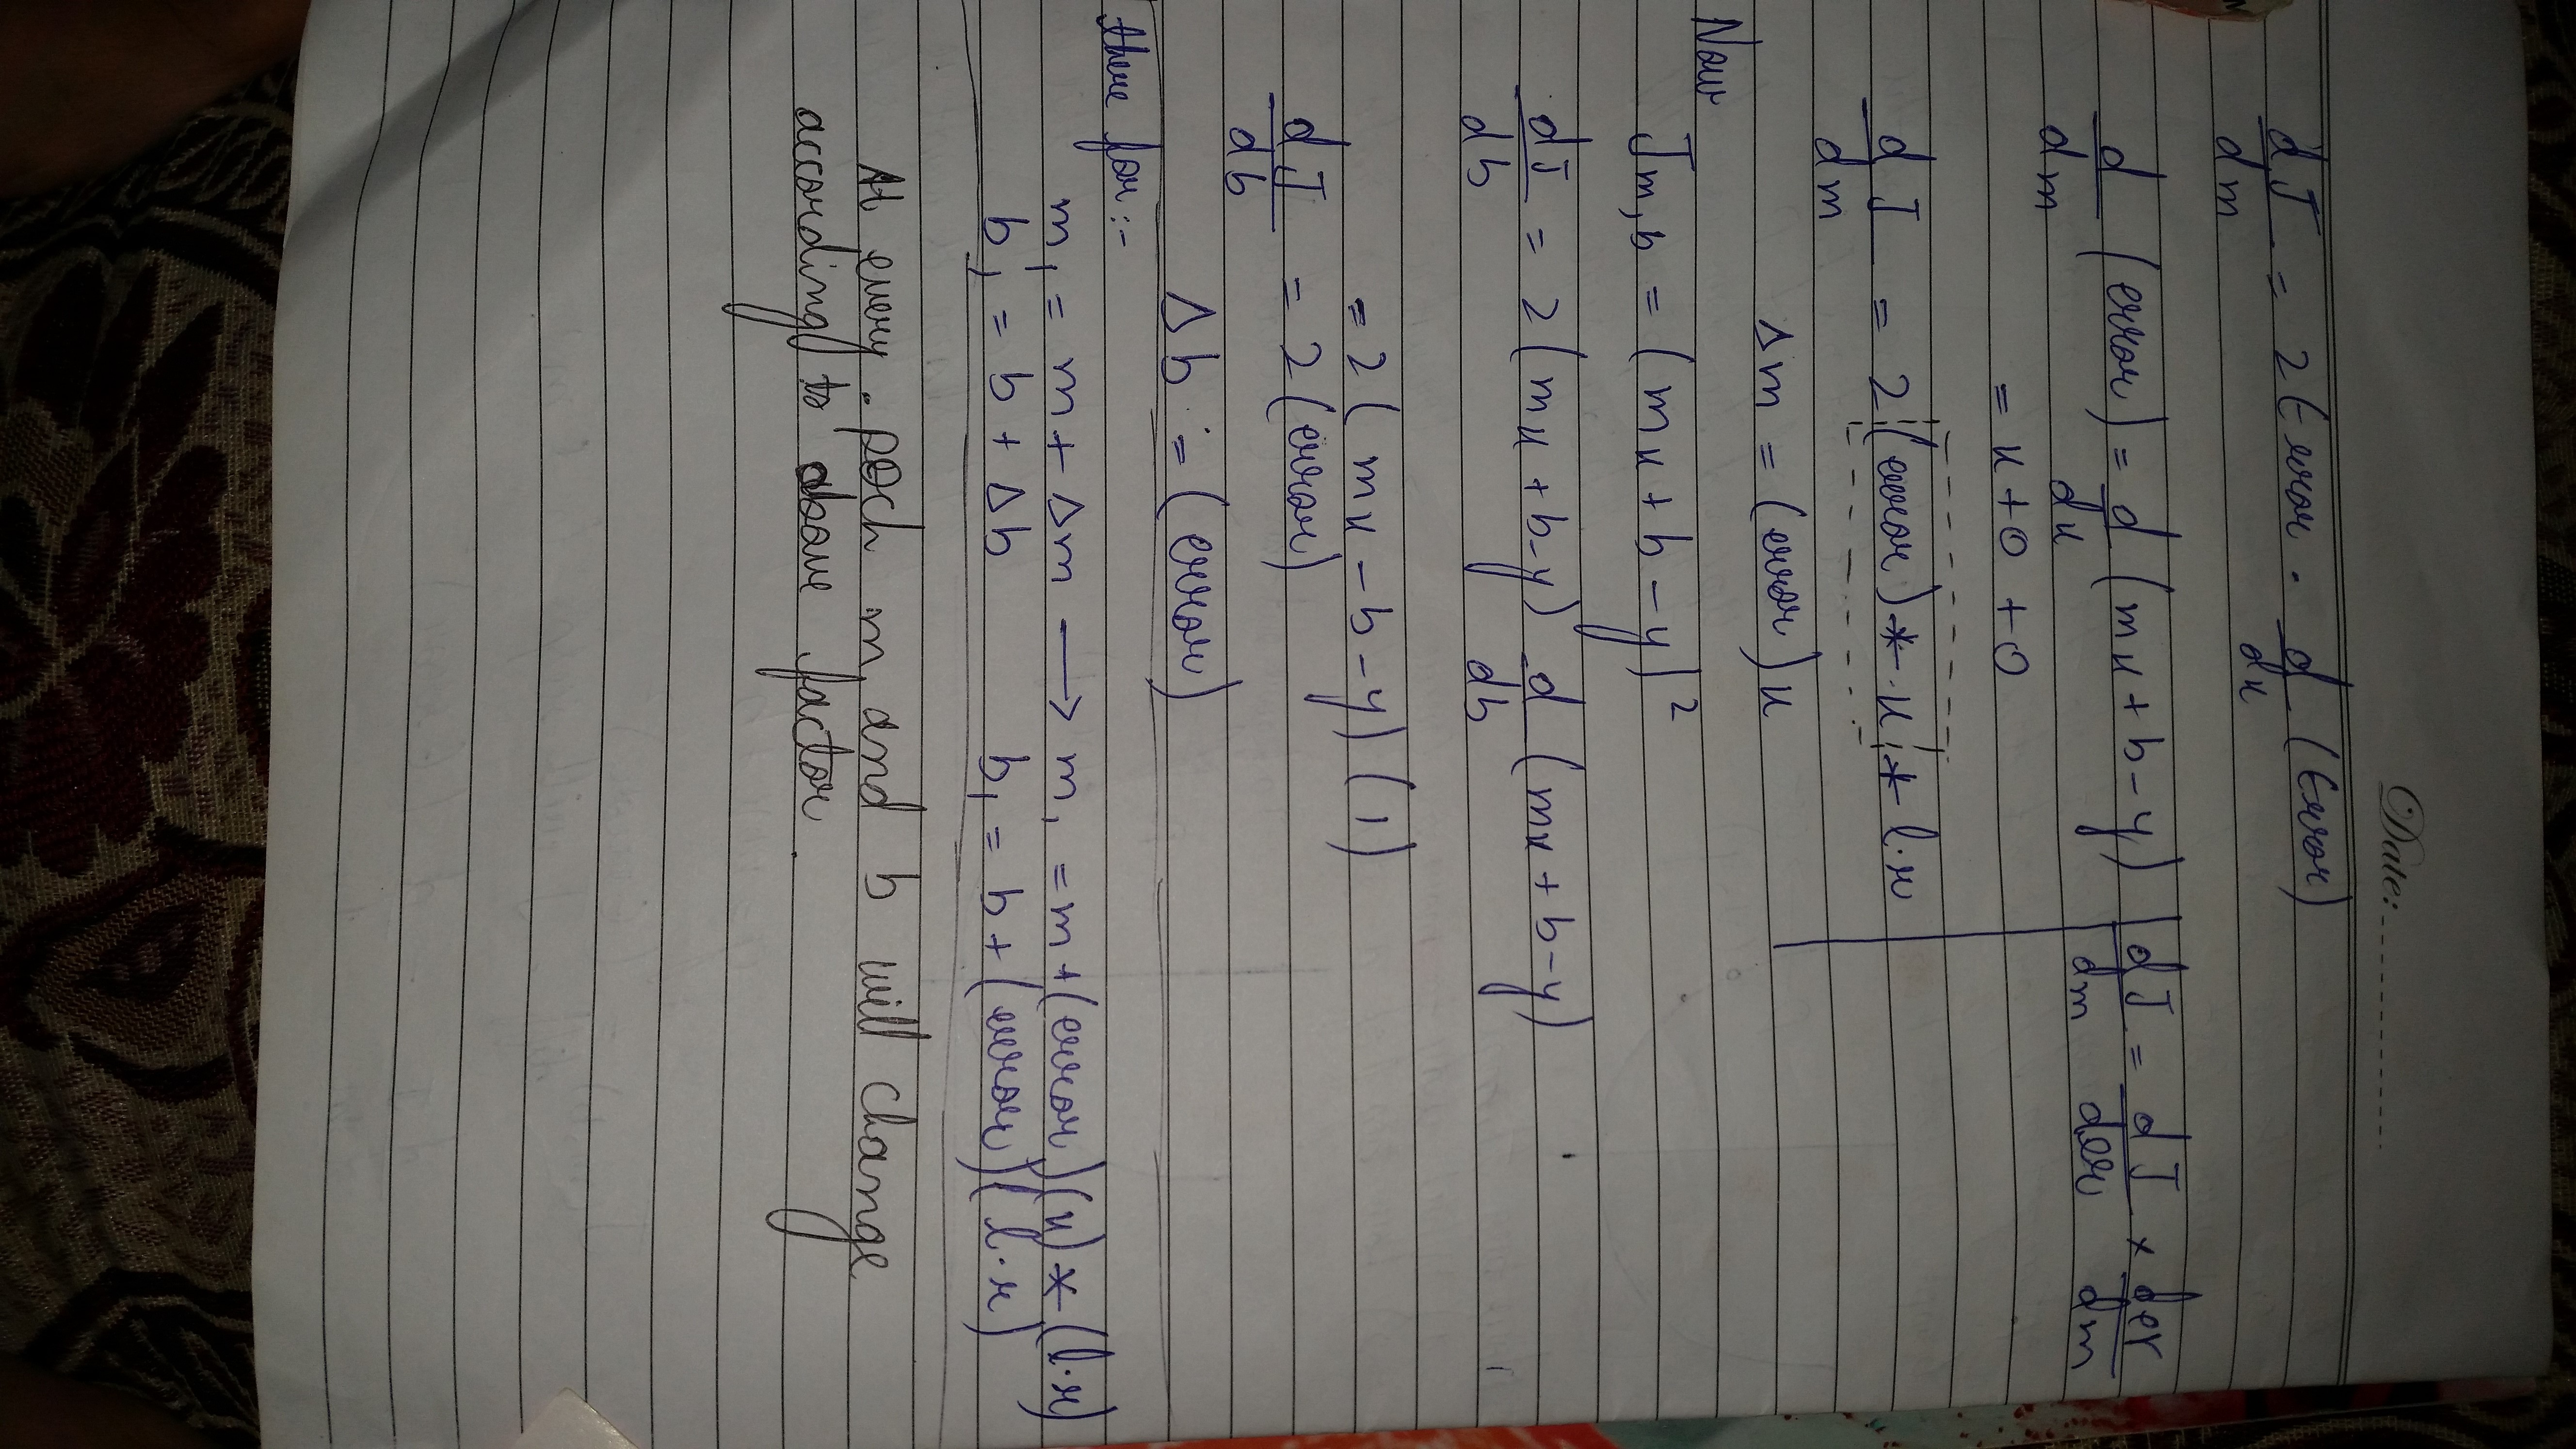 Date:
dJ/dm = 2 Error . d/dx (Error)
d/dm (error) = d/dx (mx + b - y) | dJ/dm = dJ/der × der/dm
= x + 0 + 0
dJ/dm = 2 (error) * x * l.r
Δm = (error) x
Now
Jm,b = (mx + b - y)²
dJ/db = 2 (mx + b - y) d/db (mx + b - y)
= 2 (mx - b - y) (1)
dJ/db = 2 (error)
Δb = (error)
there for :-
m₁ = m + Δm → m₁ = m + (error)(x) * (l.r)
b₁ = b + Δb b₁ = b + (error)(l.r)
At every . poch m and b will change
according to above factor.